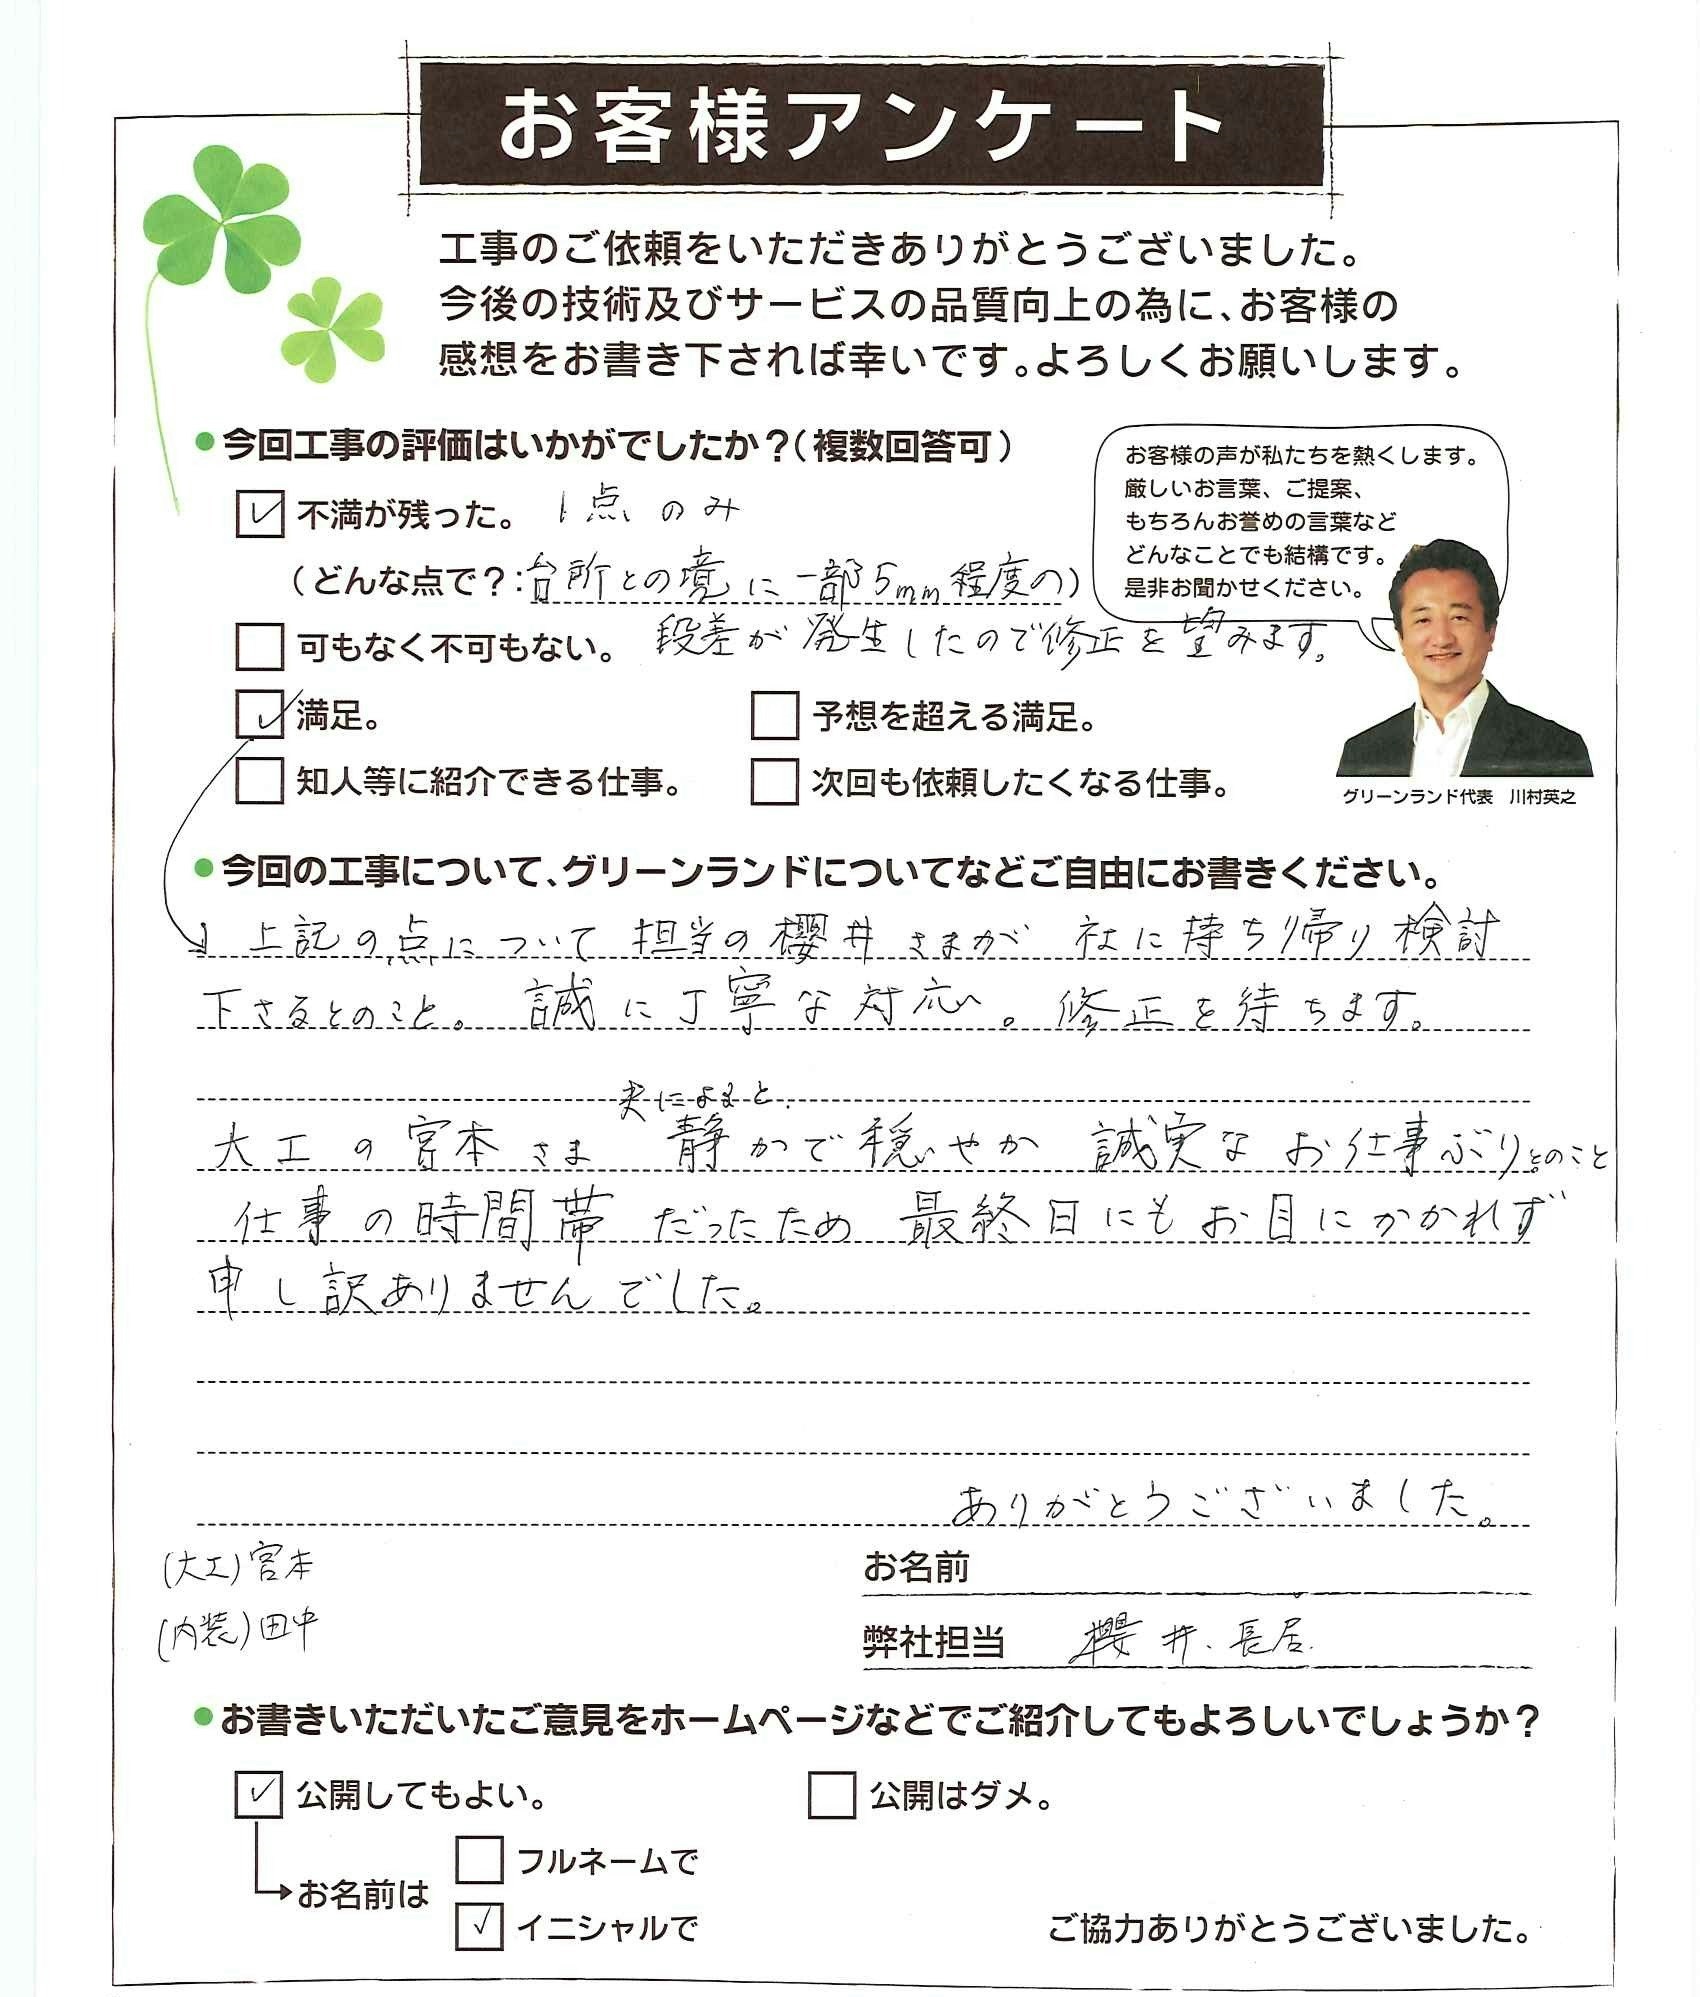 お客様アンケート
工事のご依頼をいただきありがとうございました。
今後の技術及びサービスの品質向上の為に、お客様の
感想をお書き下されば幸いです。よろしくお願いします。
●今回工事の評価はいかがでしたか？（複数回答可）
お客様の声が私たちを熱くします。
厳しいお言葉、ご提案、
もちろんお誉めの言葉など
どんなことでも結構です。
是非お聞かせください。
グリーンランド代表　川村英之
☑不満が残った。 1点のみ
（どんな点で？：台所との境に一部5mm程度の）
段差が発生したので修正を望みます。
□可もなく不可もない。
☑満足。 □予想を超える満足。
□知人等に紹介できる仕事。 □次回も依頼したくなる仕事。
●今回の工事について、グリーンランドについてなどご自由にお書きください。
上記の点について 担当の櫻井さまが 社に持ち帰り検討
下さるとのこと。 誠に丁寧な対応。 修正を待ちます。
夫によると、
大工の宮本さま 静かで穏やか 誠実なお仕事ぶりとのこと
仕事の時間帯だったため 最終日にもお目にかかれず
申し訳ありませんでした。
ありがとうございました。
(大工)宮本
(内装)田中
お名前
弊社担当 櫻井、長居
●お書きいただいたご意見をホームページなどでご紹介してもよろしいでしょうか？
☑公開してもよい。 □公開はダメ。
→お名前は
□フルネームで
☑イニシャルで
ご協力ありがとうございました。